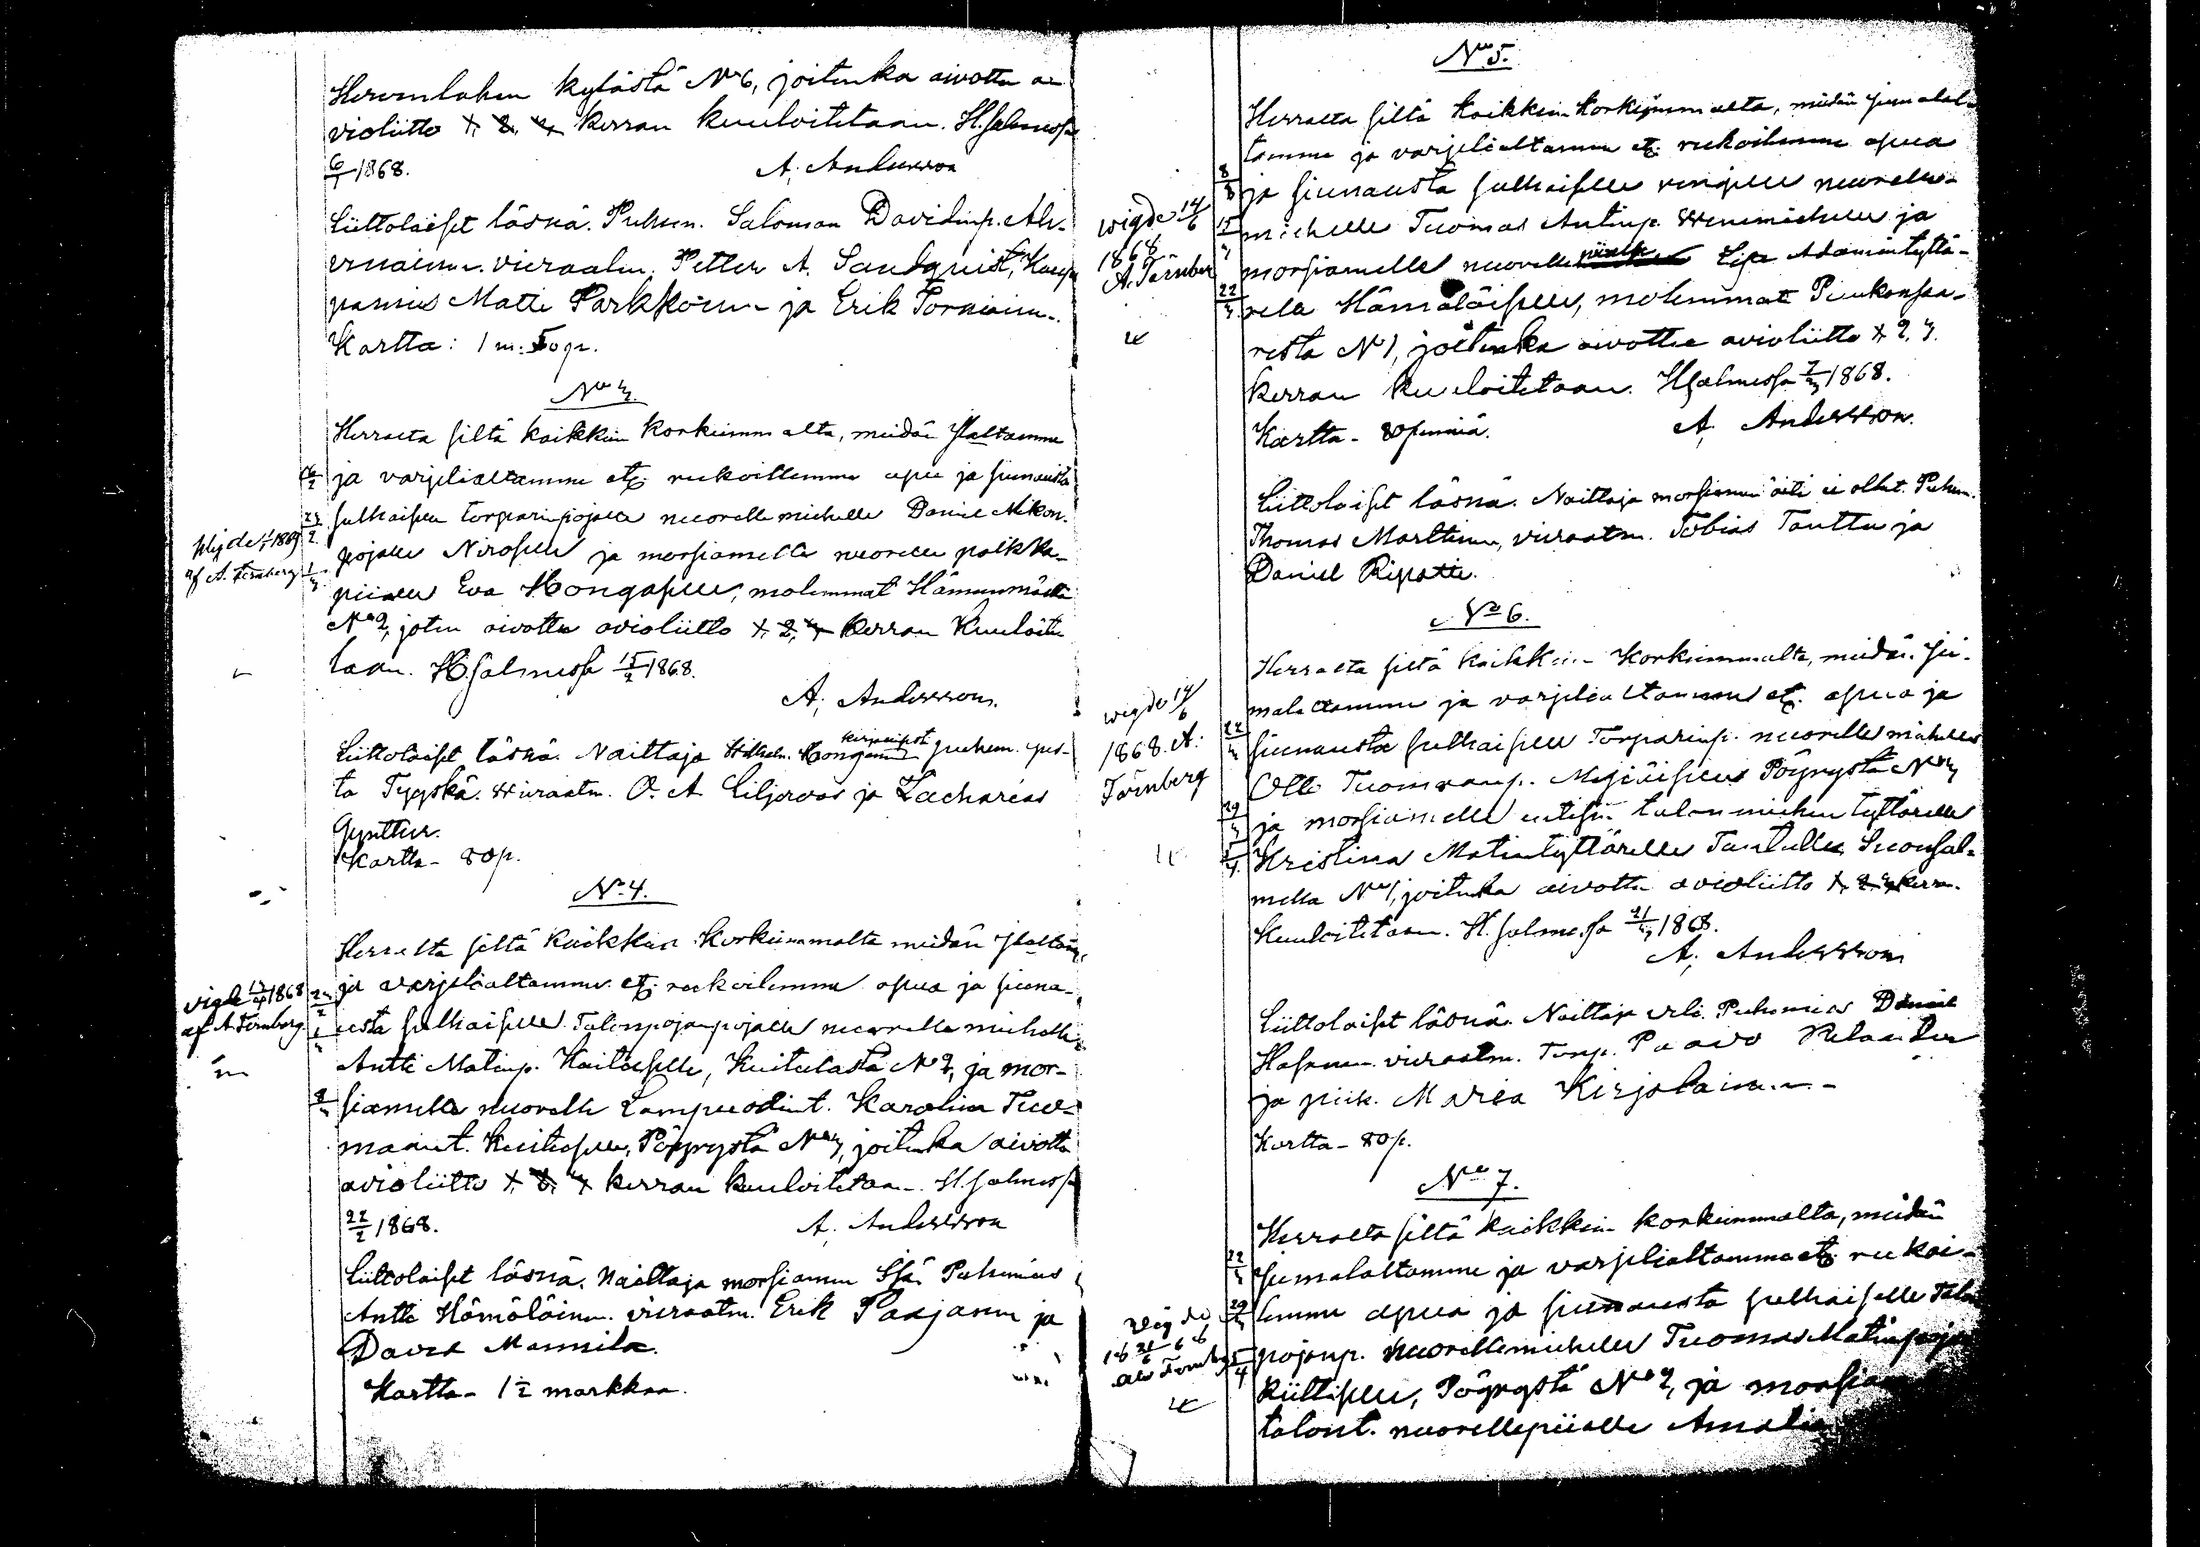 Hirvenlahen kylästä No 6, joitenka aivottu a-
violiitto 1. 2. 3. kerran kuuloitetaan. H.salmessa
6/1 1868. A. Andersson
Liittolaiset läsnä. Puhem. Saloman Davidinp. Ah-
venainen. vieraalm. Petter A. Sandqvist, Kaup-
pamies Matti Parkkonen ja Erik Torniain.
Kartta: 1 m. 50 p.
No 3.
Herralta siltä kaikkein korkeimmalta, meidän Jlaltamme
ja varjelialtamme etc. rukoillemme apu ja siunausta
sulhaisen torparinpojalle nuorelle miehelle Daniel Nikon-
pojalle Niroselle ja morsiamelle nuorelle palkka-
piialle Eva Hongaselle, molemmat Hämeenmäeltä
No 2, joten aivottu avioliitto 1. 2. 3. kerran kuuloite-
taan. H.salmessa 15/2 1868.
A. Andersson.
Liittolaiset läsnä. Naittaja Wilhelm. Honganen puhem.
ta Tyyskä. Wieraatm. O. A Liljeroos ja Zacharias
Gynther.
Kartta - 80 p.
No 4.
Herralta siltä kaikkein korkeimmalta meidän Jlaltam.
ja varjelialtamme etc. rukoilemme apua ja siuna-
usta sulhaiselle Talonpojanpojalle nuorelle miehelle
Antti Matinp. Kaitaselle, Kuitulasta No 2, ja mor-
siamelle nuorelle Lampuodint. Karolina Tuo-
maant. Kuituselle, Pöyrystä No 3, joitenka aivottu
avioliitto 1. 2. 3. kerran kuuloitetaan. H.salmessa
22/2 1868. A. Andersson
Liittolaiset läsnä. Naittaja morsiamen Isä. Puhemies
Antti Hämäläinen. vieraatm. Erik Paajanen ja
David Mannila.
Kartta - 1 1/2 markkaa.
wigde 1869
af A. Ternberg
vigde 1868
af A Ternberg.
No 5.
Herralta siltä kaikkein korkeimmalta, meidän Jumalal-
tamme ja varjelialtamme etc. rukoilemme apua
ja siunausta sulhaiselle rengille nuorelle-
miehelle Tuomas Antinp. Wenemiehelle ja
morsiamelle nuorelle piialle Lisa Adamintyttä-
relle Hämäläiselle, molemmat Puukonsaa-
resta No 1, joitenka aivottu avioliitto 1. 2. 3.
kerran kuuloitetaan. H.salmessa 7/3 1868.
Kartta - 80 penniä. A. Andersson.
Liittolaiset läsnä. Naittaja morsiamen äiti ei ollut. Puhem.
Thomas Marttinen, vieraatm. Tobias Tanttu ja
Daniel Ripatti.
No 6.
Herralta siltä kaikkein korkeimmalta, meidän Ju-
malaltamme ja varjelialtamme etc. apua ja
siunausta sulhaiselle Torparinp. nuorelle miehelle
Olli Tuomaanp. Pöyrystä No 3
ja morsiamelle entisen talonmiehen tyttärelle
Kristina Matintyttärelle Tantulle Suonsal-
mella No 1, joitenka aivottu avioliitto 1. 2. 3. kerran
kuuloitetaan. H.salmessa 21/3 1868.
A. Andersson
Liittolaiset läsnä. Naittaja veli. Puhemies Daniel
Hasunen. vieraatm. Torp. Paavo Pulander
ja piik. Maria Kirjalainen -
Kartta - 80 p.
No 7.
Herralta siltä kaikkein korkeimmalta, meidän
Jumalaltamme ja varjelialtamme etc. rukoi-
lemme apua ja siunausta sulhaiselle Talon
pojanp. nuorellemiehelle Tuomas Matinpoja
Kiiltiselle, Pöyrystä No 2, ja morsia
talont. nuorellepiialle Amalia
wigde 14/6
1868
A. Ternberg
wigde 14/6
1868. A.
Törnberg
wigde
18 21/6 68
av Ternberg